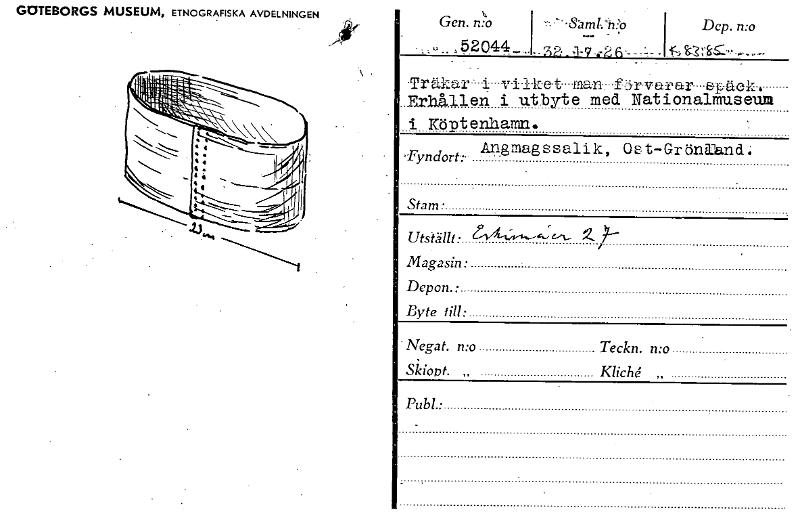 GÖTEBORGS MUSEUM, ETNOGRAFISKA AVDELNINGEN
23 cm
Gen. n:o Saml. n:o Dep. n:o
52044 32.17.26
Träkar i vilket man förvarar späck.
Erhållen i utbyte med Nationalmuseum
i Köptenhamn.
Fyndort: Angmagssalik, Ost-Grönland.
Stam:
Utställt: Eskimåer 27
Magasin:
Depon.:
Byte till:
Negat. n:o Teckn. n:o
Skiopt. „ Kliché „
Publ.: